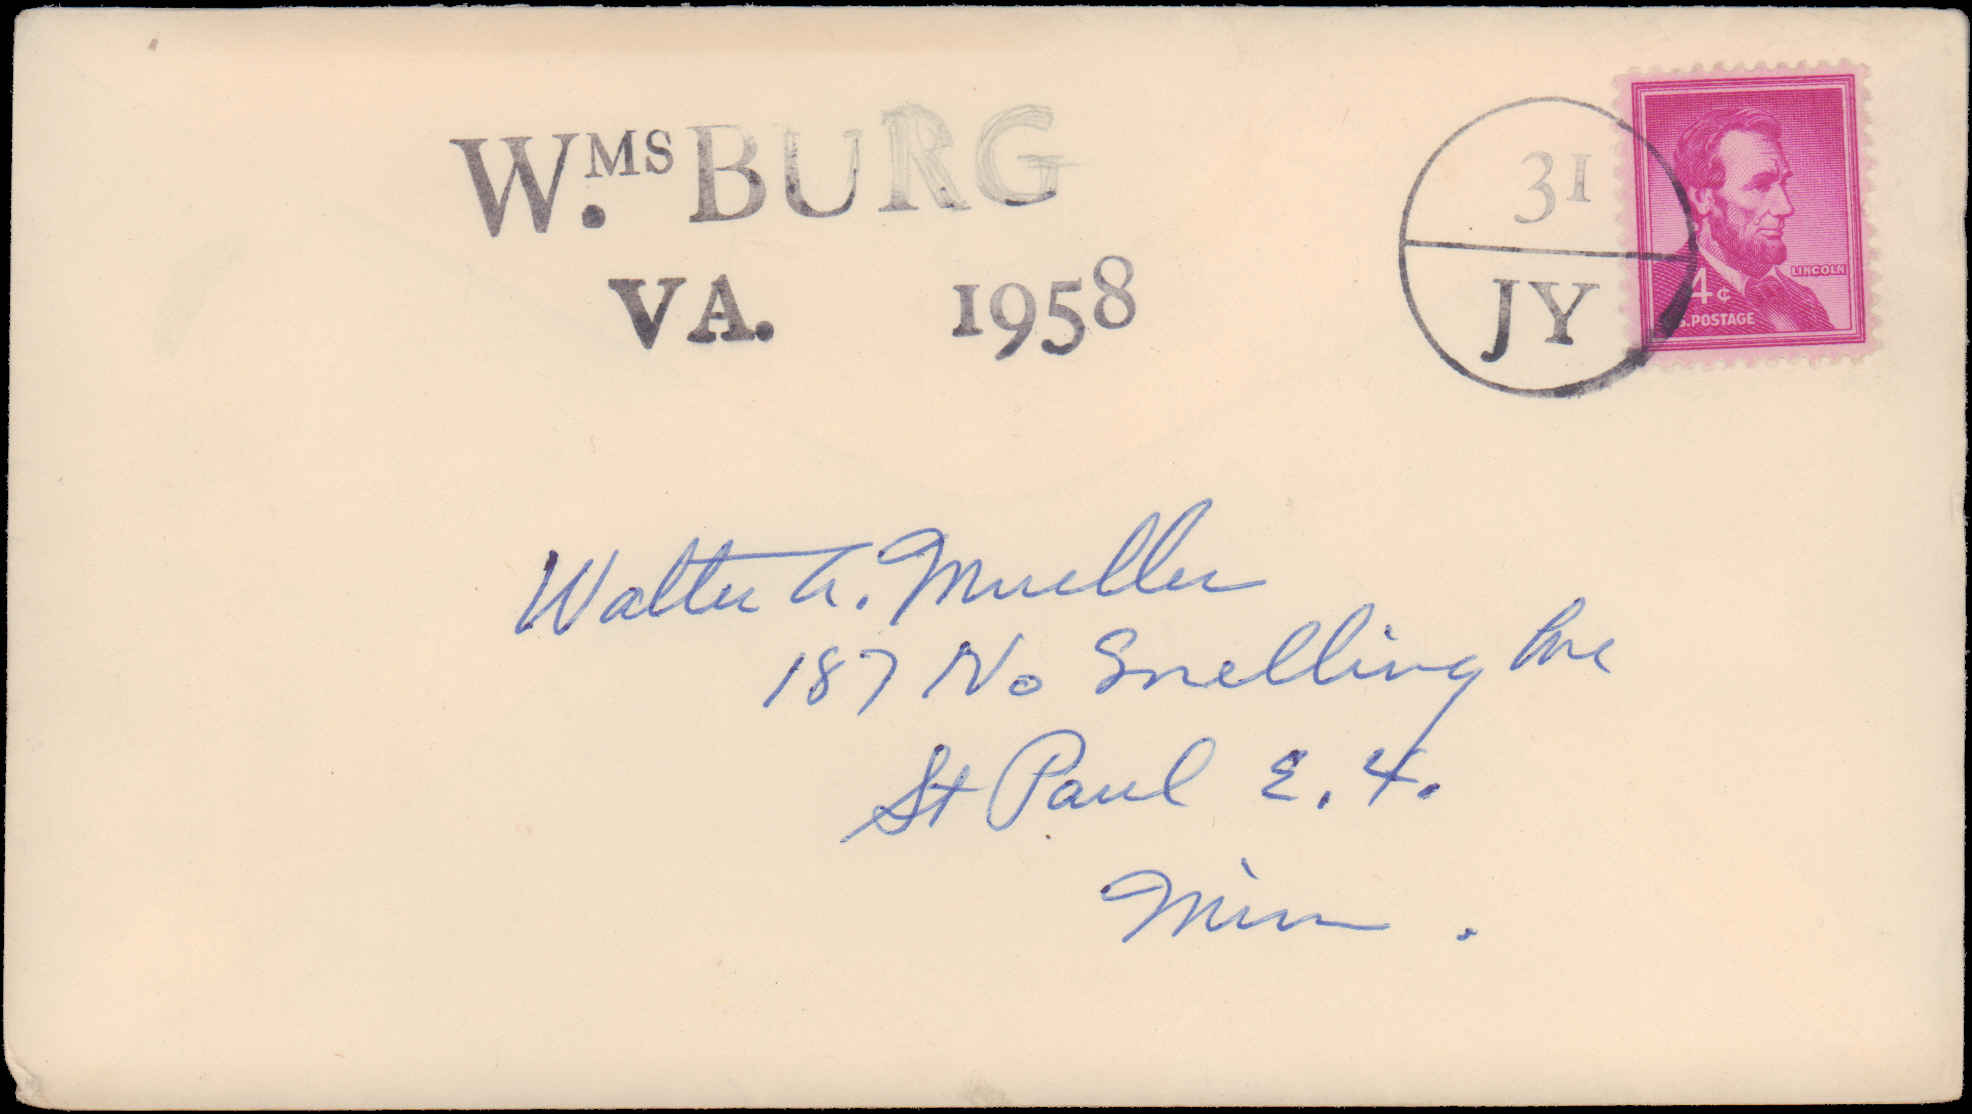 W.MS BURG
VA. 1958
31
JY
LINCOLN
4¢
U.S.POSTAGE
Walter A. Mueller
187 No Snelling Ave
St Paul E. 4.
Minn.